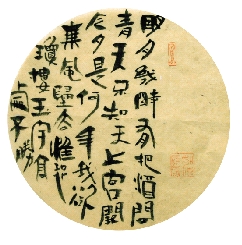 明月幾時有把酒問
青天不知天上宮闕
今夕是何年我欲
乘風歸去惟恐
瓊樓玉宇高
處不勝